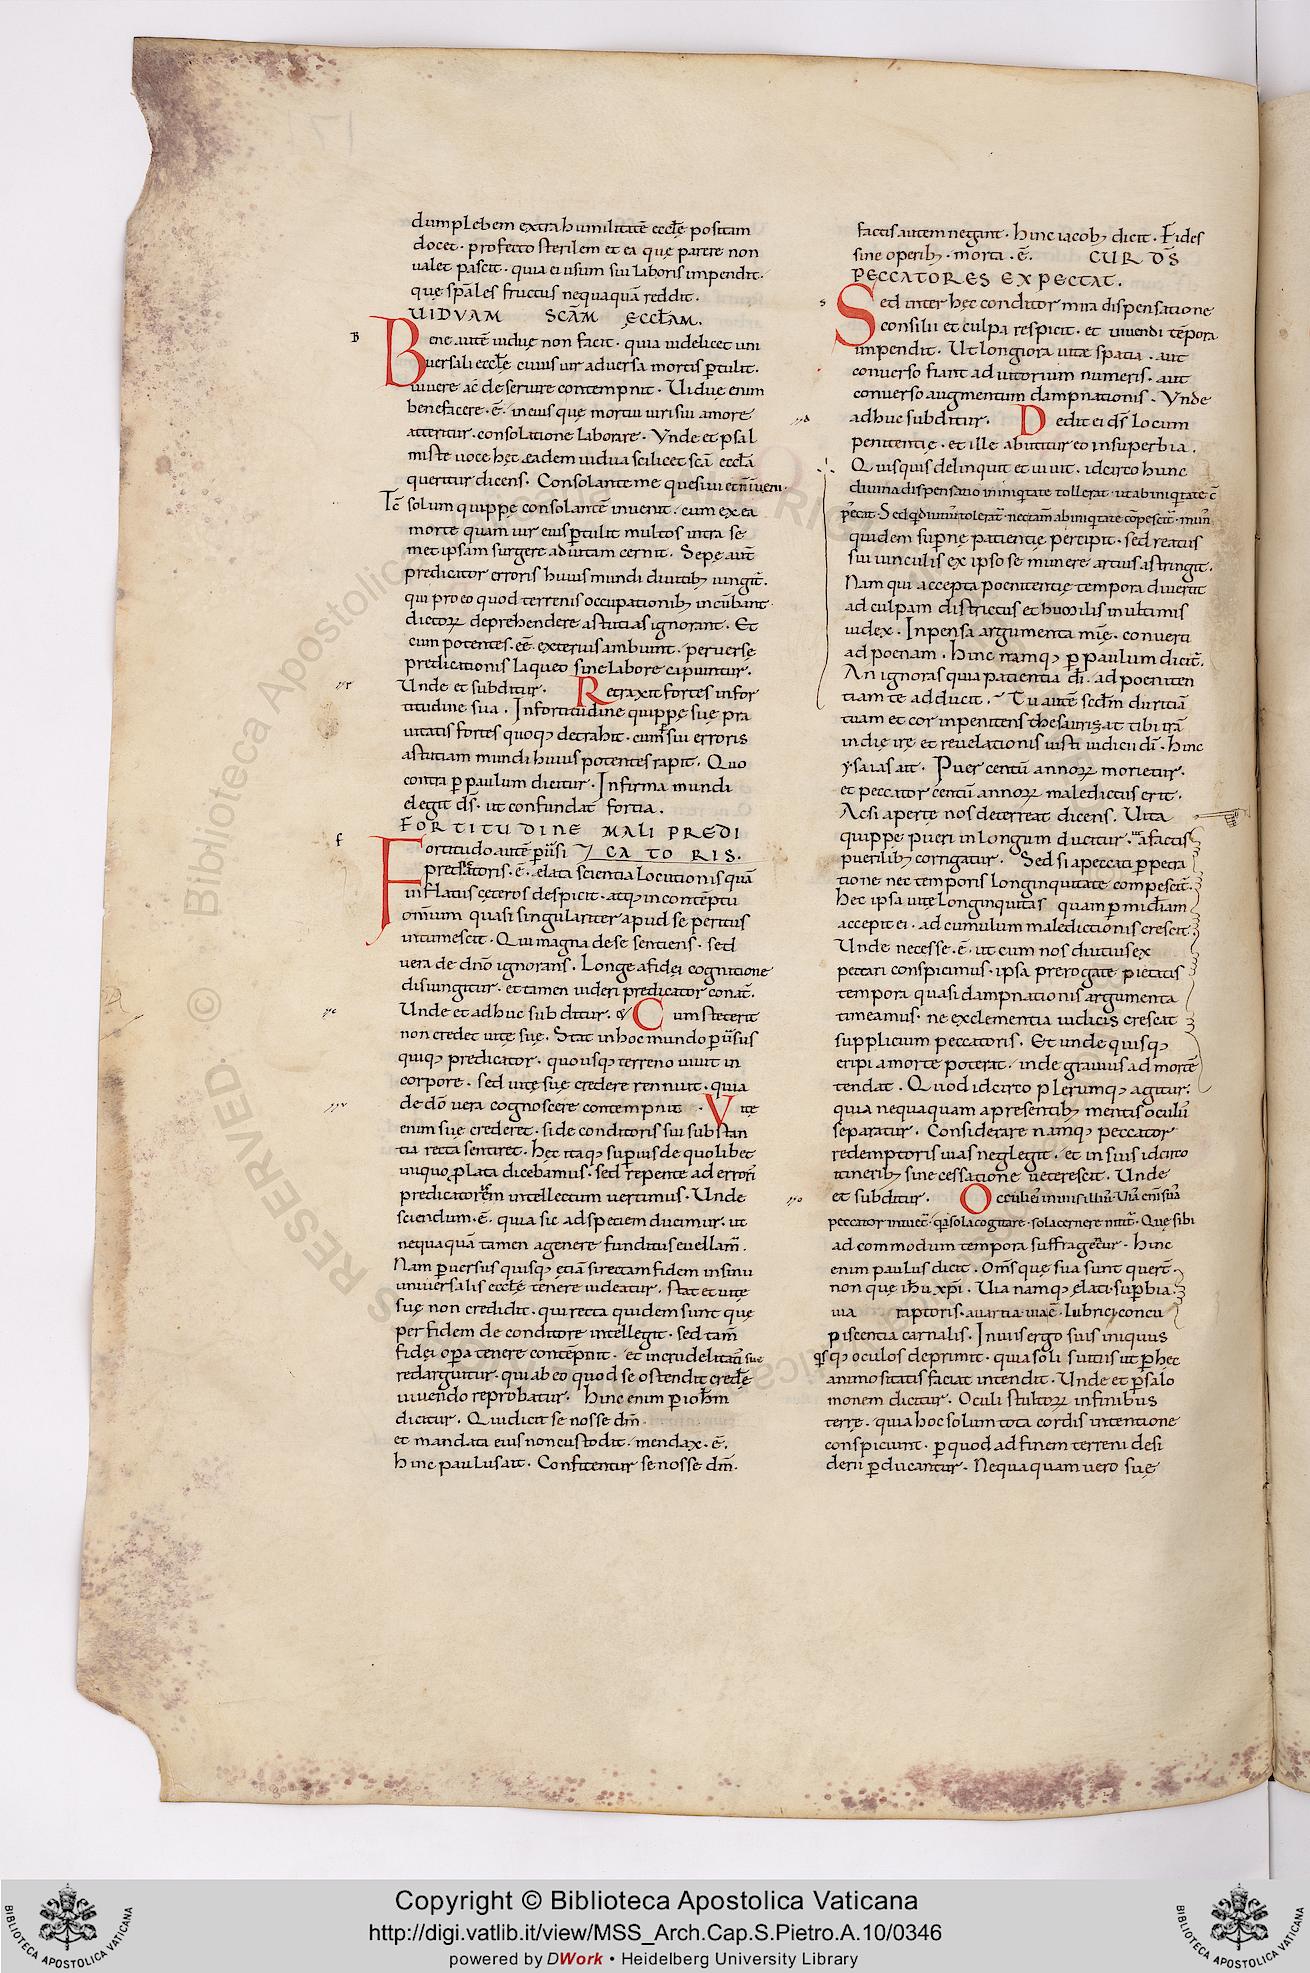 dum plebem extra humilitatē ecclę positam
docet · profecto sterilem et ea quę parere non
ualet pascit · quia ei usum sui laboris impendit ·
quę sp̄ales fructus nequaquā reddit ·
UIDUAM SCĀM ĘCCLAM.
Bene autē uiduę non facit · quia uidelicet uni
uersali ecclę cuius uir aduersa mortis ꝑtulit ·
uiuere ac̄ deseruire contempnit · Uiduę enim
benefacere · ē · in eius quę mortui uiri sui amore
atteritur · consolatione laborare · Vnde et psal
miste uoce hęc eadem uidua scilicet scā ecclā
queritur dicens · Consolantē me quesiui et n̄ inueni ·
solum quippe consolantē inuenit · cum ex ea
morte quam uir eius ꝑtulit multos intra se
met ipsam surgere ad uitam cernit · Sepę aut̄
predicator erroris huius mundi diuitibꝫ iungit̄ ·
qui pro eo quod terrenis occupationibꝫ incūbant ·
dictoꝝ deprehendere astutias ignorant · Et
cum potentes · eē · exterius ambiunt · peruersę
predicationis laqueo sine labore capiuntur ·
Unde et subditur · Retraxit fortes in for
titudine sua · In fortitudine quippe suę pra
uitatis fortes quoqꝫ detrahit · cum sui erroris
astutiam mundi huius potentes rapit · Quo
contra ꝑ paulum dicitur · Infirma mundi
elegit ds̄ · ut confundat fortia ·
FORTITUDINE MALI PREDI
Fortitudo autē ꝑuersi CATORIS.
predicatoris · ē · elata scientia locutionis quā
inflatus cęteros despicit · atqꝫ in contēptu
omnium quasi singulariter apud se peritus
intumescit · Qui magna de se sentiens · sed
uera de dn̄o ignorans · Longe a fidei cognitione
disiungitur · et tamen uideri predicator conat̄ ·
Unde et adhuc subditur · Cum steterit
non credet uitę suę · Stat in hoc mundo ꝑuersus
quiqꝫ predicator · quousqꝫ terreno uiuit in
corpore · sed uitę suę credere rennuit · quia
de dō uera cognoscere contempnit · Vitę
enim suę crederet · si de conditoris sui substan
tia recta sentiret · hęc itaqꝫ superius de quolibet
iniquo ꝓlata dicebamus · sed repente ad errorē
predicatorem intellectum uertimus · Unde
sciendum · ē · quia sic ad speciem ducimur · ut
nequaquā tamen a genere funditus euellam̄ ·
Nam ꝑuersus quisqꝫ etiā si rectam fidem in sinu
uniuersalis ecclę tenere uideatur · stat et uitę
suę non credidit · qui recta quidem sunt quę
per fidem de conditore intellegit · sed tam̄
fidei oꝑa tenere contēpnit · et in crudelitati suę
redarguitur · qui ab eo quod se ostendit credere
uiuendo reprobatur · hinc enim ꝑ ioh̄m
dicitur · Qui dicit se nosse dm̄ ·
et mandata eius non custodit · mendax · ē ·
hinc paulus ait · Confitentur se nosse dm̄ ·
factis autem negant · hinc iacobꝫ dicit · Fides
sine operibꝫ · mortua · ē · CUR DS̄
PECCATORES EXPECTAT.
Sed inter hęc conditor mira dispensatione
consilii et culpa respicit · et uiuendi tēpora
impendit · Ut longiora uitæ spatia · aut
conuerso fiant adiutorium numeris · aut
conuerso augmentum dampnationis · Vnde
adhuc subditur · Dedit ei ds̄ locum
penitentię · et ille abutitur eo in superbia ·
Quisquis delinquit et uiuit · idcirco hunc
diuina dispensatio in iniquitate tollerat · ut ab iniquitate
quidem suꝑnę patientię percipit · sed reatus
sui uinculis ex ipso se munere artius astringit ·
Nam qui accepta poenitentię tempora diuertit
ad culpam districtus et humilis in ultimis
iudex · Inpensa argumenta mīę · conuerti
ad poenam · hinc namqꝫ ꝑ paulum dicit̄ ·
An ignoras quia patientia dī · ad poeniten
tiam te adducit · Tu autē scdm duritiā
tuam et cor inpenitens thesaurizat tibi irā
in die irę et reuelationis iusti iudicii dī · hinc
ysaias ait · Puer centū annoꝝ morietur ·
et peccator centū annoꝝ maledictus erit ·
Ac si aperte nos deterreat dicens · Uita
quippe pueri in longum ducitur · ut a factis
puerilibꝫ corrigatur · Sed si a peccati ꝑpetra
tione nec temporis longinquitate compescit̄ ·
hęc ipsa uitę longinquitas quam ꝑ miscdiam
accepit ei · ad cumulum maledictionis crescit ·
Unde necesse · ē · ut cum nos diutius ex
pectari conspicimus · ipsa prerogatę pietatis
tempora quasi dampnationis argumenta
timeamus · ne ex clementia iudicis crescat
supplicium peccatoris · Et unde quisqꝫ
eripi a morte poterat · inde grauius ad mortē
tendat · Quod idcirco plerumqꝫ agitur ·
quia nequaquam a presentibꝫ mentis oculus
separatur · Considerare namqꝫ peccator
redemptoris uias neglegit · et in suis idcirco
itineribꝫ sine cessatione ueterescit · Unde
et subditur · Oculi ei in uiis illius · Uias eni suas
peccator intuet̄ · quia sola cogitare · sola cernere nitit̄ · Quę sibi
ad commodum tempora suffragetur · hinc
enim paulus dicit · Oms̄ quę sua sunt querunt
non quę ihū xpī · Uia namqꝫ elati suꝑbia ·
uia raptoris · auaritia · uia ē · lubrici concu
piscentia carnalis · In uiis ergo suis iniquus
quisqꝫ oculos deprimit · quia soli suitiis ut ꝑ hec
animositatis faciat intendit · Unde et ꝑ salo
monem dicitur · Oculi stultoꝝ in finibus
terrę · quia hoc solum tota cordis intentione
conspiciunt · ꝑ quod ad finem terreni desi
derii ꝑducantur · Nequaquam uero suę
Copyright © Biblioteca Apostolica Vaticana
http://digi.vatlib.it/view/MSS_Arch.Cap.S.Pietro.A.10/0346
powered by DWork • Heidelberg University Library